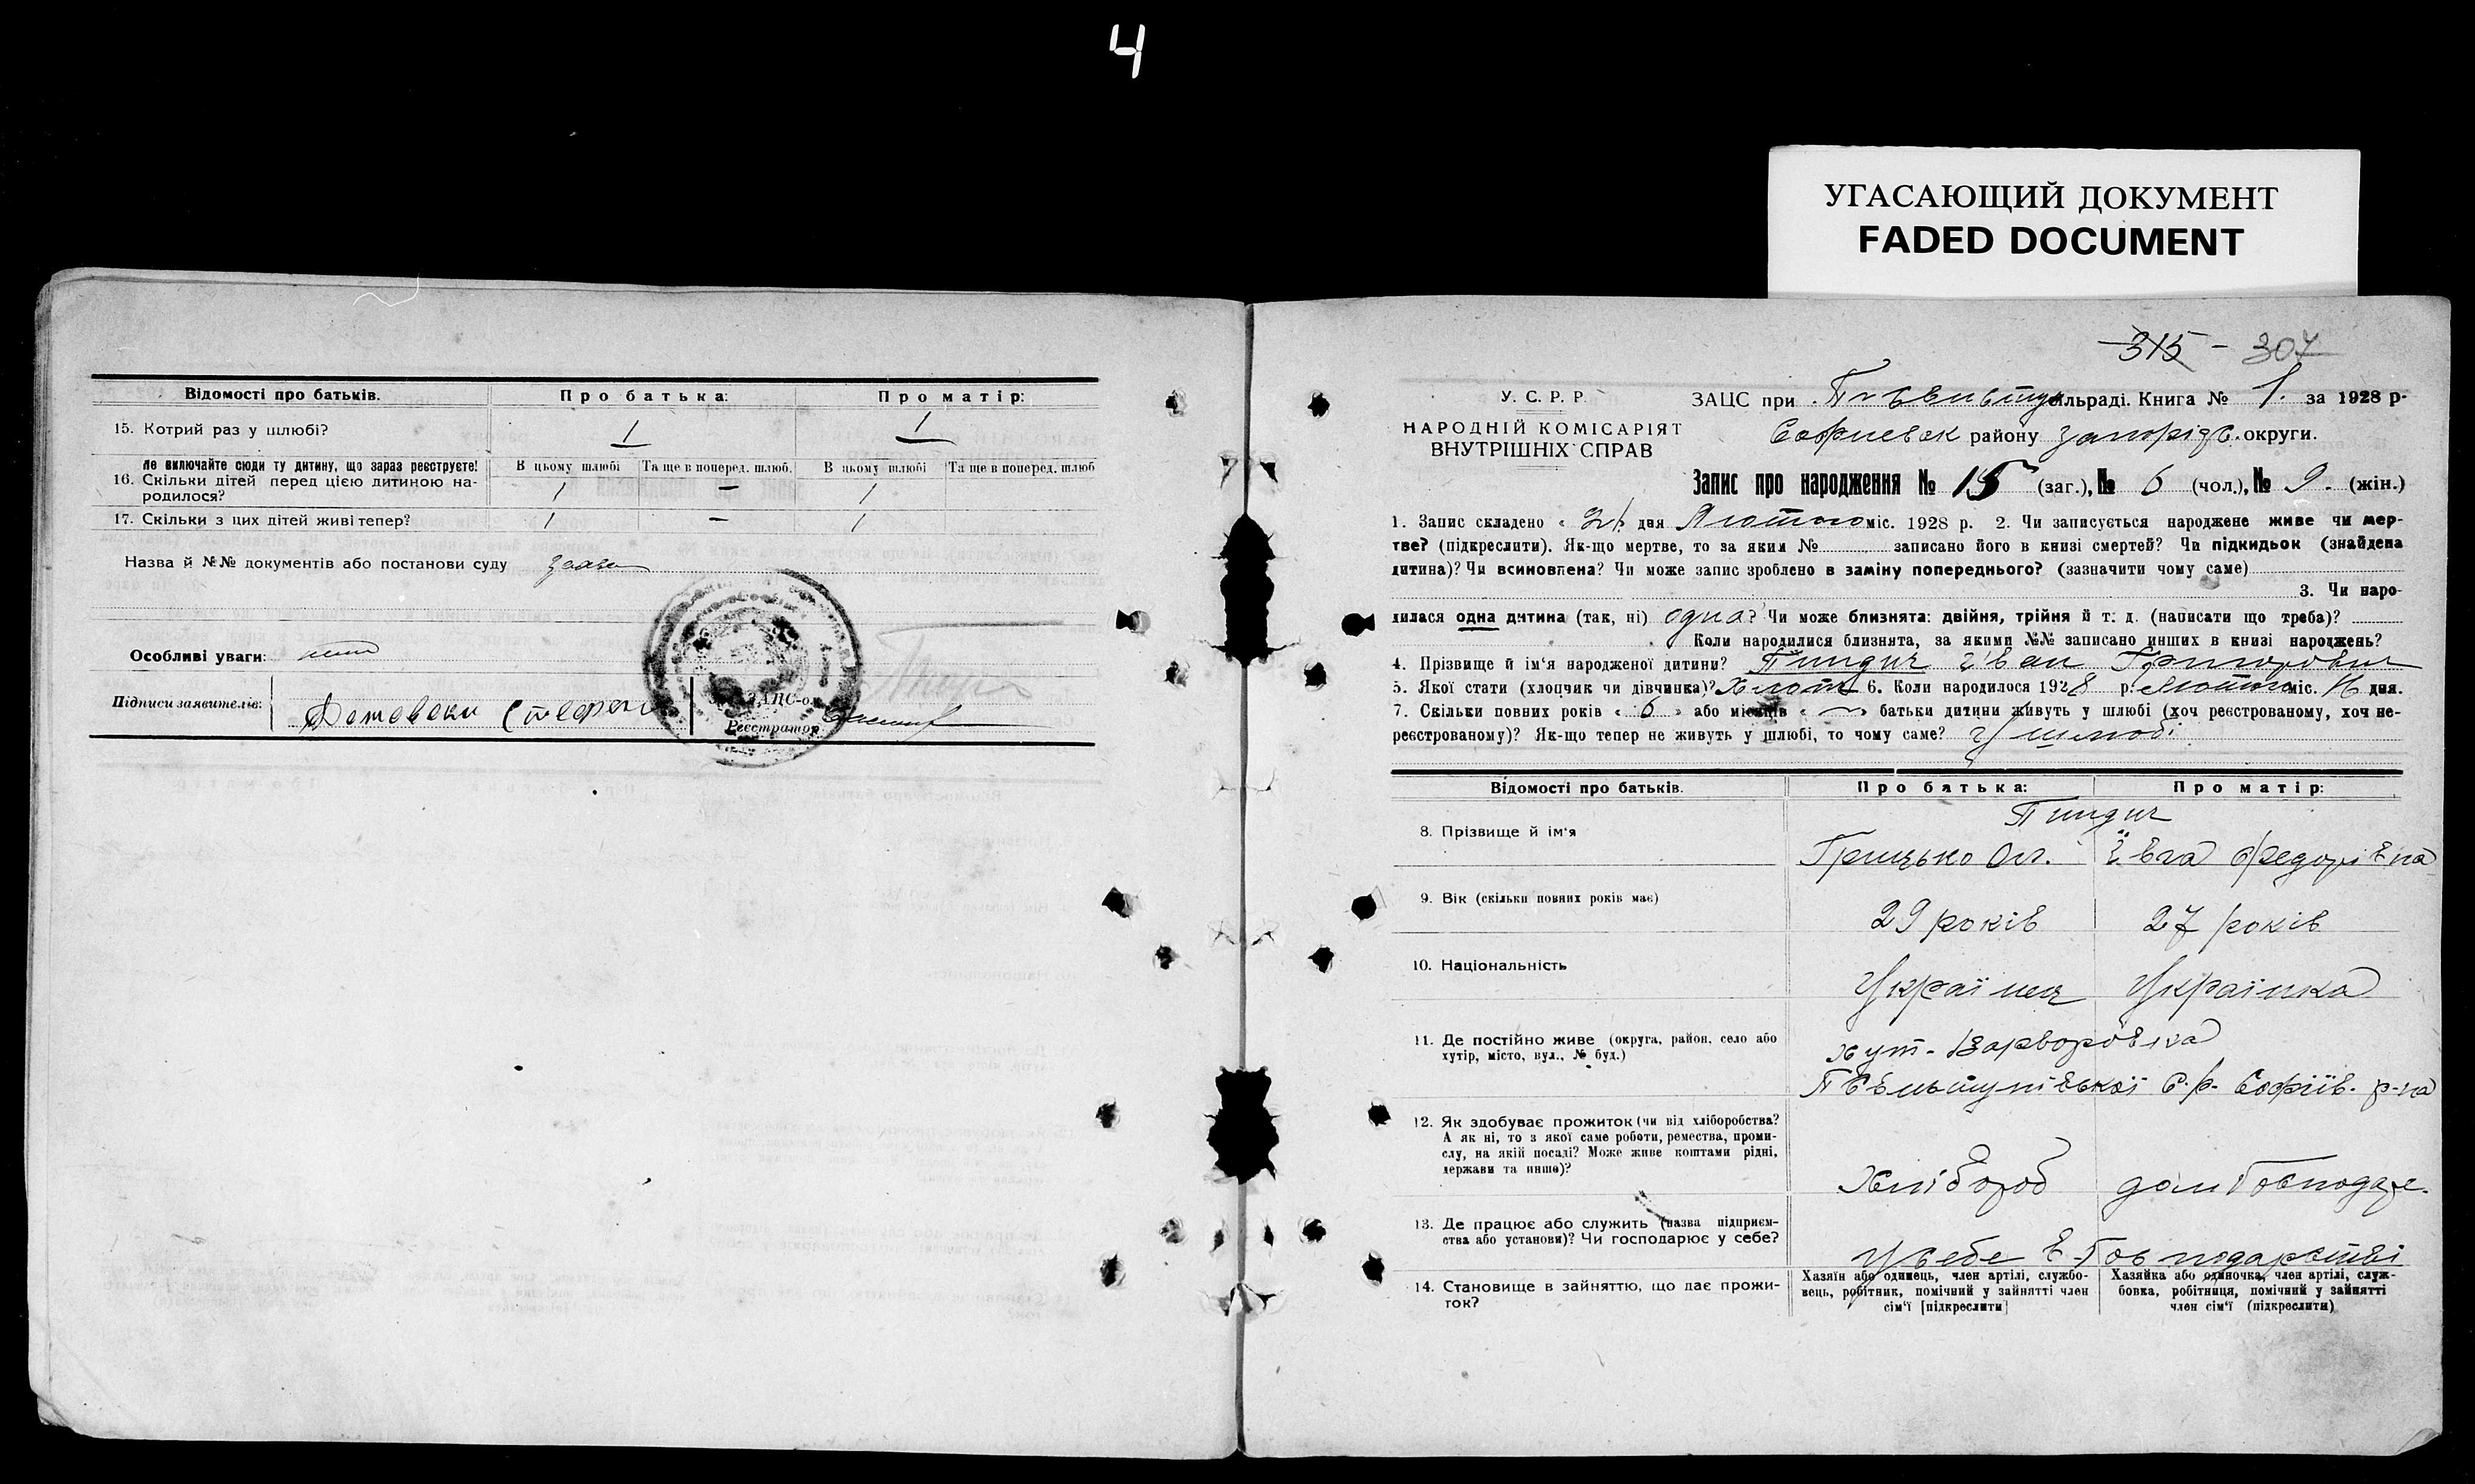 4
УГАСАЮЩИЙ ДОКУМЕНТ
FADED DOCUMENT
Відомості про батьків. Про батька: Про матір:
15. Котрий раз у шлюбі? 1 1
Не включайте сюди ту дитину, що зараз реєструєте! В цьому шлюбі Та ще в поперед. шлюб. В цьому шлюбі Та ще в поперед. шлюб
16. Скільки дітей перед цією дитиною на-
родилося? 1 — 1
17. Скільки з цих дітей живі тепер? 1 — 1
Назва й №№ документів або постанови суду
Особливі уваги:
Підписи заявителів:
ЗАЦС-ом
Реєстратор
315 - 307
У. С. Р. Р.
НАРОДНІЙ КОМІСАРІЯТ
ВНУТРІШНІХ СПРАВ
ЗАЦС при сільраді. Книга № 1. за 1928 р.
Софиевск району Запорізс. округи.
Запис про народження № 15 (заг.), № 6 (чол.), № 9. (жін.)
1. Запис складено « 21 » дня Лютого міс. 1928 р. 2. Чи записується народжене живе чи мер-
тве? (підкреслити). Як-що мертве, то за яким № записано його в книзі смертей? Чи підкидьок (знайдена
дитина)? Чи всиновлена? Чи може запис зроблено в заміну попереднього? (зазначити чому саме)
3. Чи наро-
дилася одна дитина (так, ні) одна? Чи може близнята: двійня, трійня й т. д. (написати що треба)?
Коли народилися близнята, за якими №№ записано инших в книзі народжень?
4. Прізвище й ім'я народженої дитини? Пиндич Іван Григорович
5. Якої стати (хлопчик чи дівчинка)? Хлопч 6. Коли народилося 1928 р. Лютого міс. 16 дня.
7. Скільки повних років « 6 » або місяців « — » батьки дитини живуть у шлюбі (хоч реєстрованому, хоч не-
реєстрованому)? Як-що тепер не живуть у шлюбі, то чому саме? У шлюбі
Відомості про батьків. Про батька: Про матір:
Пиндич
8. Прізвище й ім'я Грицько Ол. Ївга Федорівна
9. Вік (скільки повних років має) 29 років 27 років
10. Національність Українец Українка
11. Де постійно живе (округа, район, село або
хутір, місто, вул., № буд.) хут. Варворовка
С.р. Софіїв. р-на
12. Як здобуває прожиток (чи від хліборобства?
А як ні, то з якої саме роботи, ремества, проми-
слу, на якій посаді? Може живе коштами рідні,
держави та инше)? Хлібороб дом Господар.
13. Де працює або служить (назва підприєм-
ства або установи)? Чи господарює у себе? у себе в Господарстві
14. Становище в зайняттю, що дає прожи-
ток?
Хазяїн або одинець, член артілі, службо-
вець, робітник, помічний у зайнятті член
сім'ї [підкреслити]
Хазяйка або одиночка, член артілі, служ-
бовка, робітниця, помічний у зайнятті
член сім'ї (підкреслити)